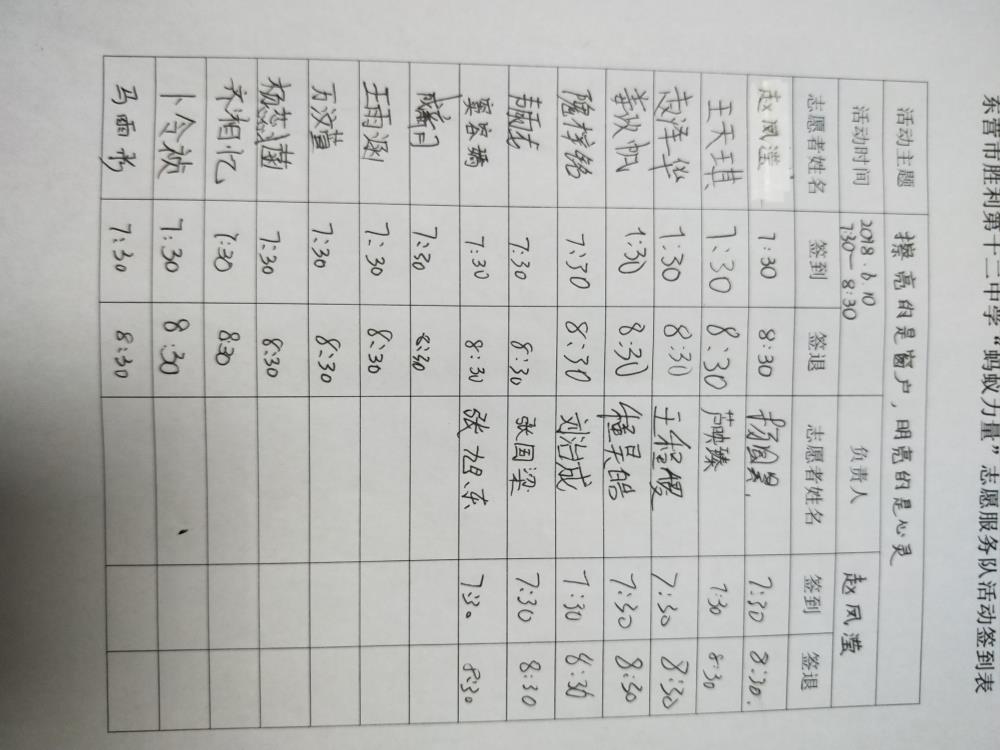 东营市胜利第十二中学“蚂蚁力量”志愿服务队活动签到表
活动主题 擦亮的是窗户，明亮的是心灵
活动时间 2018.6.10 7:30—8:30 负责人 赵凤滢
志愿者姓名 签到 签退 志愿者姓名 签到 签退
赵凤滢 7:30 8:30 7:30 8:30.
王天琪 7:30 8:30 芦映臻 7:30 8:30
赵泽华 1:30 8:30 王程煜 7:30 8:30
1:30 8:30 程昊皓 7:30 8:30
7:30 8:30 刘治成 7:30 8:30
7:30 8:30 张国梁 7:30 8:30
窦容嫣 7:30 8:30 张旭东 7:30 8:30
7:30 8:30
王雨涵 7:30 8:30
万汶萱 7:30 8:30
7:30 8:30
齐湘忆 7:30 8:30
卜令祯 7:30 8:30
马雨彤 7:30 8:30